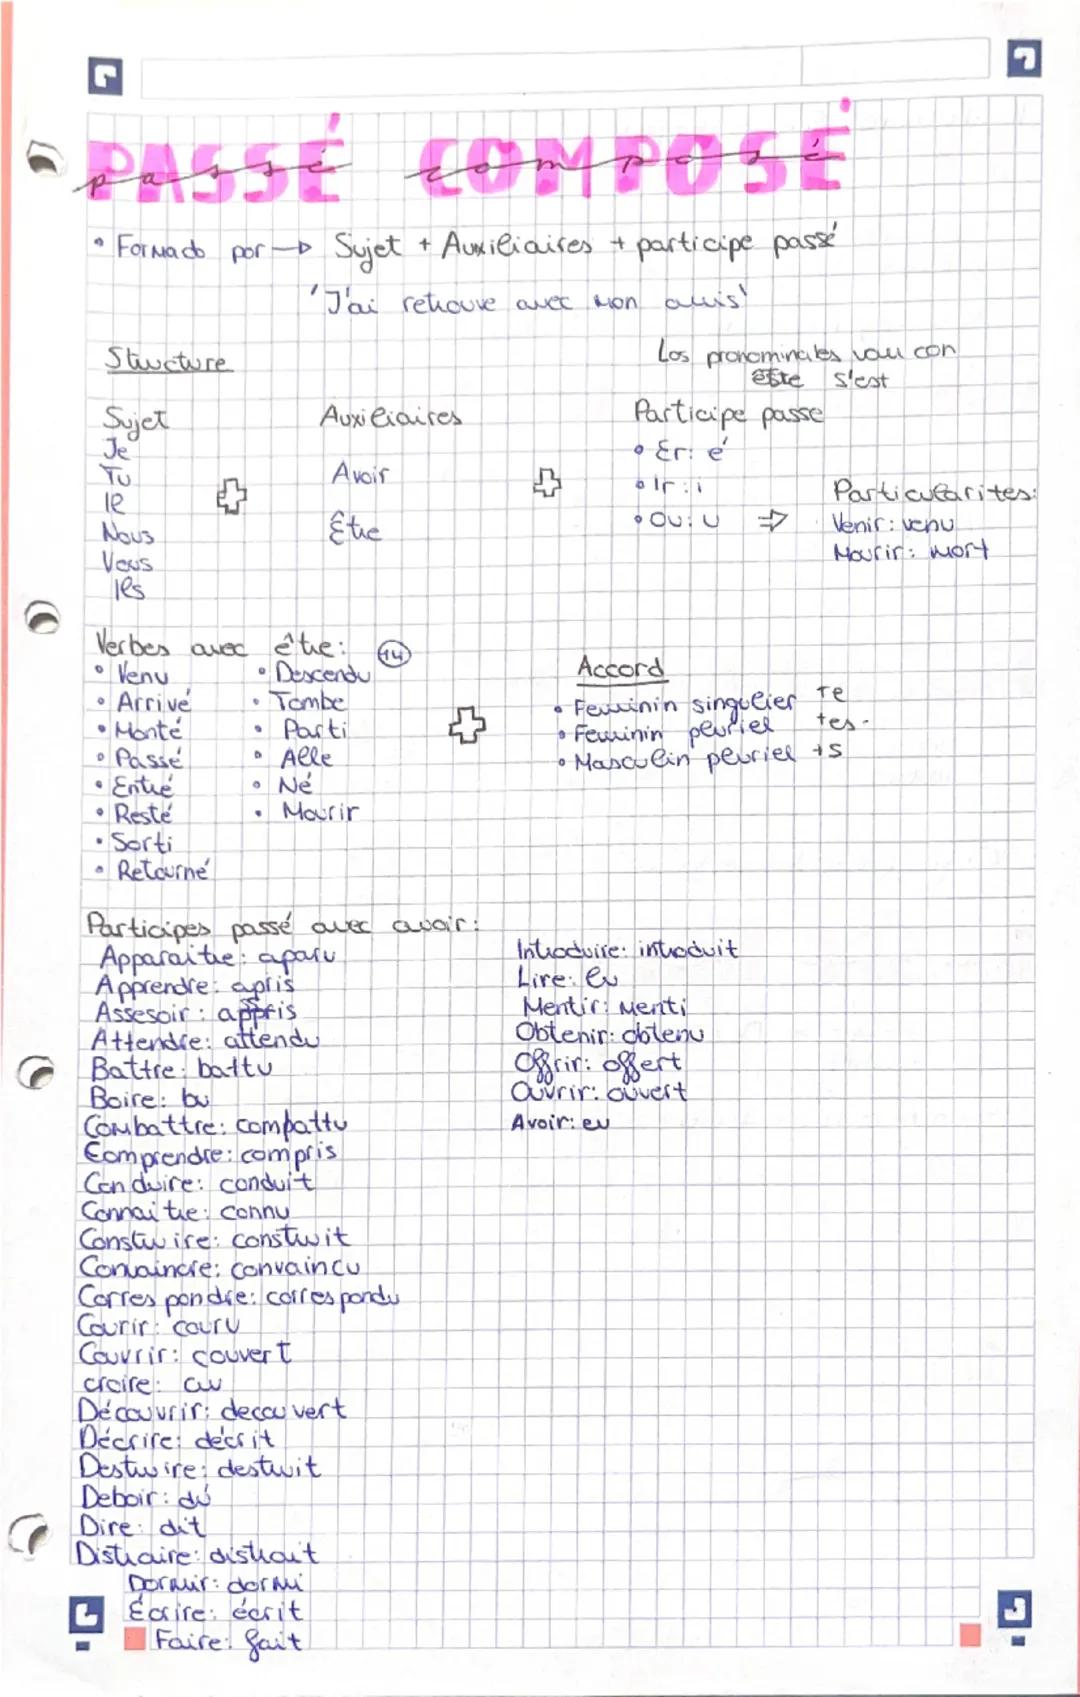 PASSÉ COMPOSÉ
passé composé
• Formado por → Sujet + Auxiliaires + participe passé
'J'ai retrouve avec mon amis'
Structure
Los pronominales vau con
être s'est
Sujet
Auxiliaires
Participe passe
Je
Tu
Il
Nous
Vous
Ils
Avoir
Être
• Er: é
• Ir: i
• Ou: u ⇒
Particularites:
Venir: venu
Mourir: mort
Verbes avec être: 14
• Venu
• Arrivé
• Monté
• Passé
• Entré
• Resté
• Sorti
• Retourné
• Descendu
• Tombe
• Parti
• Alle
• Né
• Mourir
Accord
• Feminin singulier +e
• Feminin pluriel +es.
• Masculin pluriel +s
Participes passé avec avoir:
Apparaitre: aparu
Apprendre: apris
Assesoir: appris
Attendre: attendu
Battre: battu
Boire: bu
Combattre: compattu
Comprendre: compris
Conduire: conduit
Connaitre: connu
Construire: construit
Convaincre: convaincu
Correspondre: correspondu
Courir: couru
Couvrir: couvert
croire: cru
Découvrir: decouvert
Décrire: décrit
Destruire: destruit
Deboir: dú
Dire: dit
Distraire: distrait
Dormir: dormi
Écrire: écrit
Faire: fait
Introduire: introduit
Lire: lu
Mentir: menti
Obtenir: obtenu
Offrir: offert
Ouvrir: ouvert
Avoir: eu